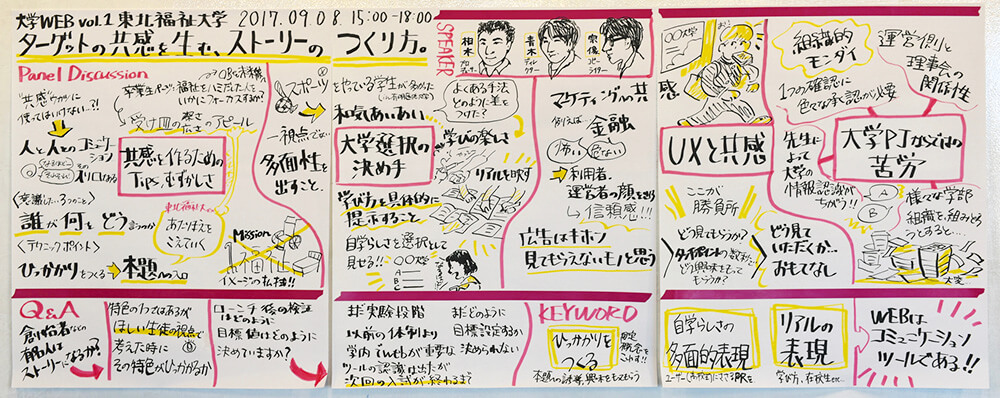 大学WEB vol.1 東北福祉大学 2017.09.08. 15:00-18:00
ターゲットの共感を生む、ストーリーの つくり方。
SPEAKER
柏木
青木
ディレクター
ライター
Panel Discussion
"共感"ウカツに
使ってはいけない…?!
人と人とのコミュニケーション
受け皿の
広さの
アピール
共感を作るための
Tips,むずかしさ
〈意識したい3つのこと〉
誰が何をどう言うのか
〈テクニックポイント〉
ひっかかりをつくる→本題への入口
東北福祉大
あたりまえを
こえていく
スポーツ
一視点でない
多面性を
出すこと。
Mission
イメージの払拭!!
和気あいあい
よくある手法
とどのように差を
つけた?
大学選択の
決め手
学びの楽しさ
リアルを映す
学び方を具体的に
提示すること
自学らしさを選択して
見せる!!
〇〇大学
A
B
C
マーケティングの共感
例えば金融
怖い
危ない
利用者、
運営者の顔を出す
信頼感!!!
広告はキホン
見てもらえないモノと思う
〇〇大学
UXと共感
ここが
勝負所
どう見てもらうか?
どう興味をもって
もらうか?
どう見て
いただくか…
おもてなし
組織的
モンダイ
1つの確認に
色々な承認が必要
運営側と
理事会の
関係性
先生に
よって
大学の
情報認識が
ちがう!!
大学PJならではの
苦労
A
B
様々な学部
組織を組みとろ
うとすると…
大変…
Q&A
創始者などの
有名人は
ストーリーになるか?
特色の1つではあるが
ほしい生徒の視点で
考えた時に
その特色がひっかかるか
ローンチ後の検証
はどのように
目標値はどのように
決めていますか?
まだ実験段階
以前の体制より
学内でwebが重要な
ツールの認識は出たが
次回の入試が終わるまで
まだどのように
目標設定するか
決められない
KEYWORD
ひっかかりを
つくる
固定
概念を
こわす!!
自学らしさの
多面的表現
リアルの
表現
学び方、在校生etc…
WEBは、
コミュニケーション
ツールである!!